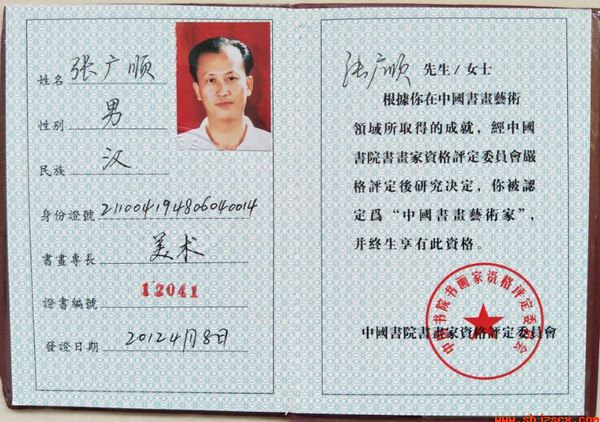 姓名 张广顺
性别 男
民族 汉
身份證號 211004194806040014
書畫專長 美术
證書編號 12041
發證日期 2012年4月8日
张广顺 先生/女士
根據你在中國書畫藝術
領域所取得的成就，經中國
書院書畫家資格評定委員會嚴
格評定後研究決定，你被認
定爲“中國書畫藝術家”，
并終生享有此資格。
中国书院书画家资格评定委员会
中國書院書畫家資格評定委員會
www.shjzscx.com